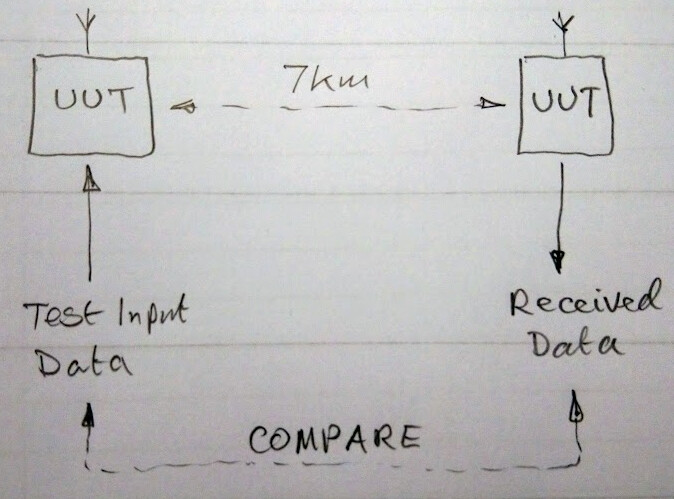 UUT
7km
UUT
Test Input
Data
Received
Data
COMPARE